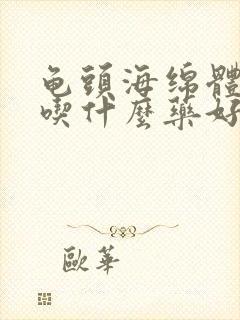 龟頭海绵體
喫什麼藥好
歐華